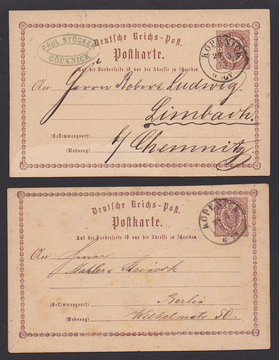 Deutsche Reichs-Post.
Postkarte.
PAUL STÖCKEL
CÖPENICK
KÖPENICK
Auf die Vorderseite ist nur die Adresse zu schreiben.
An Herrn Robert Ludwig
Limbach
(Bestimmungsort)
b/ Chemnitz
(Wohnung)
Deutsche Reichs-Post.
Postkarte.
KÖPENICK
Auf die Vorderseite ist nur die Adresse zu schreiben.
An Herrn
Mahler
(Bestimmungsort)
Berlin
(Wohnung)
Wilhelmstr 50.